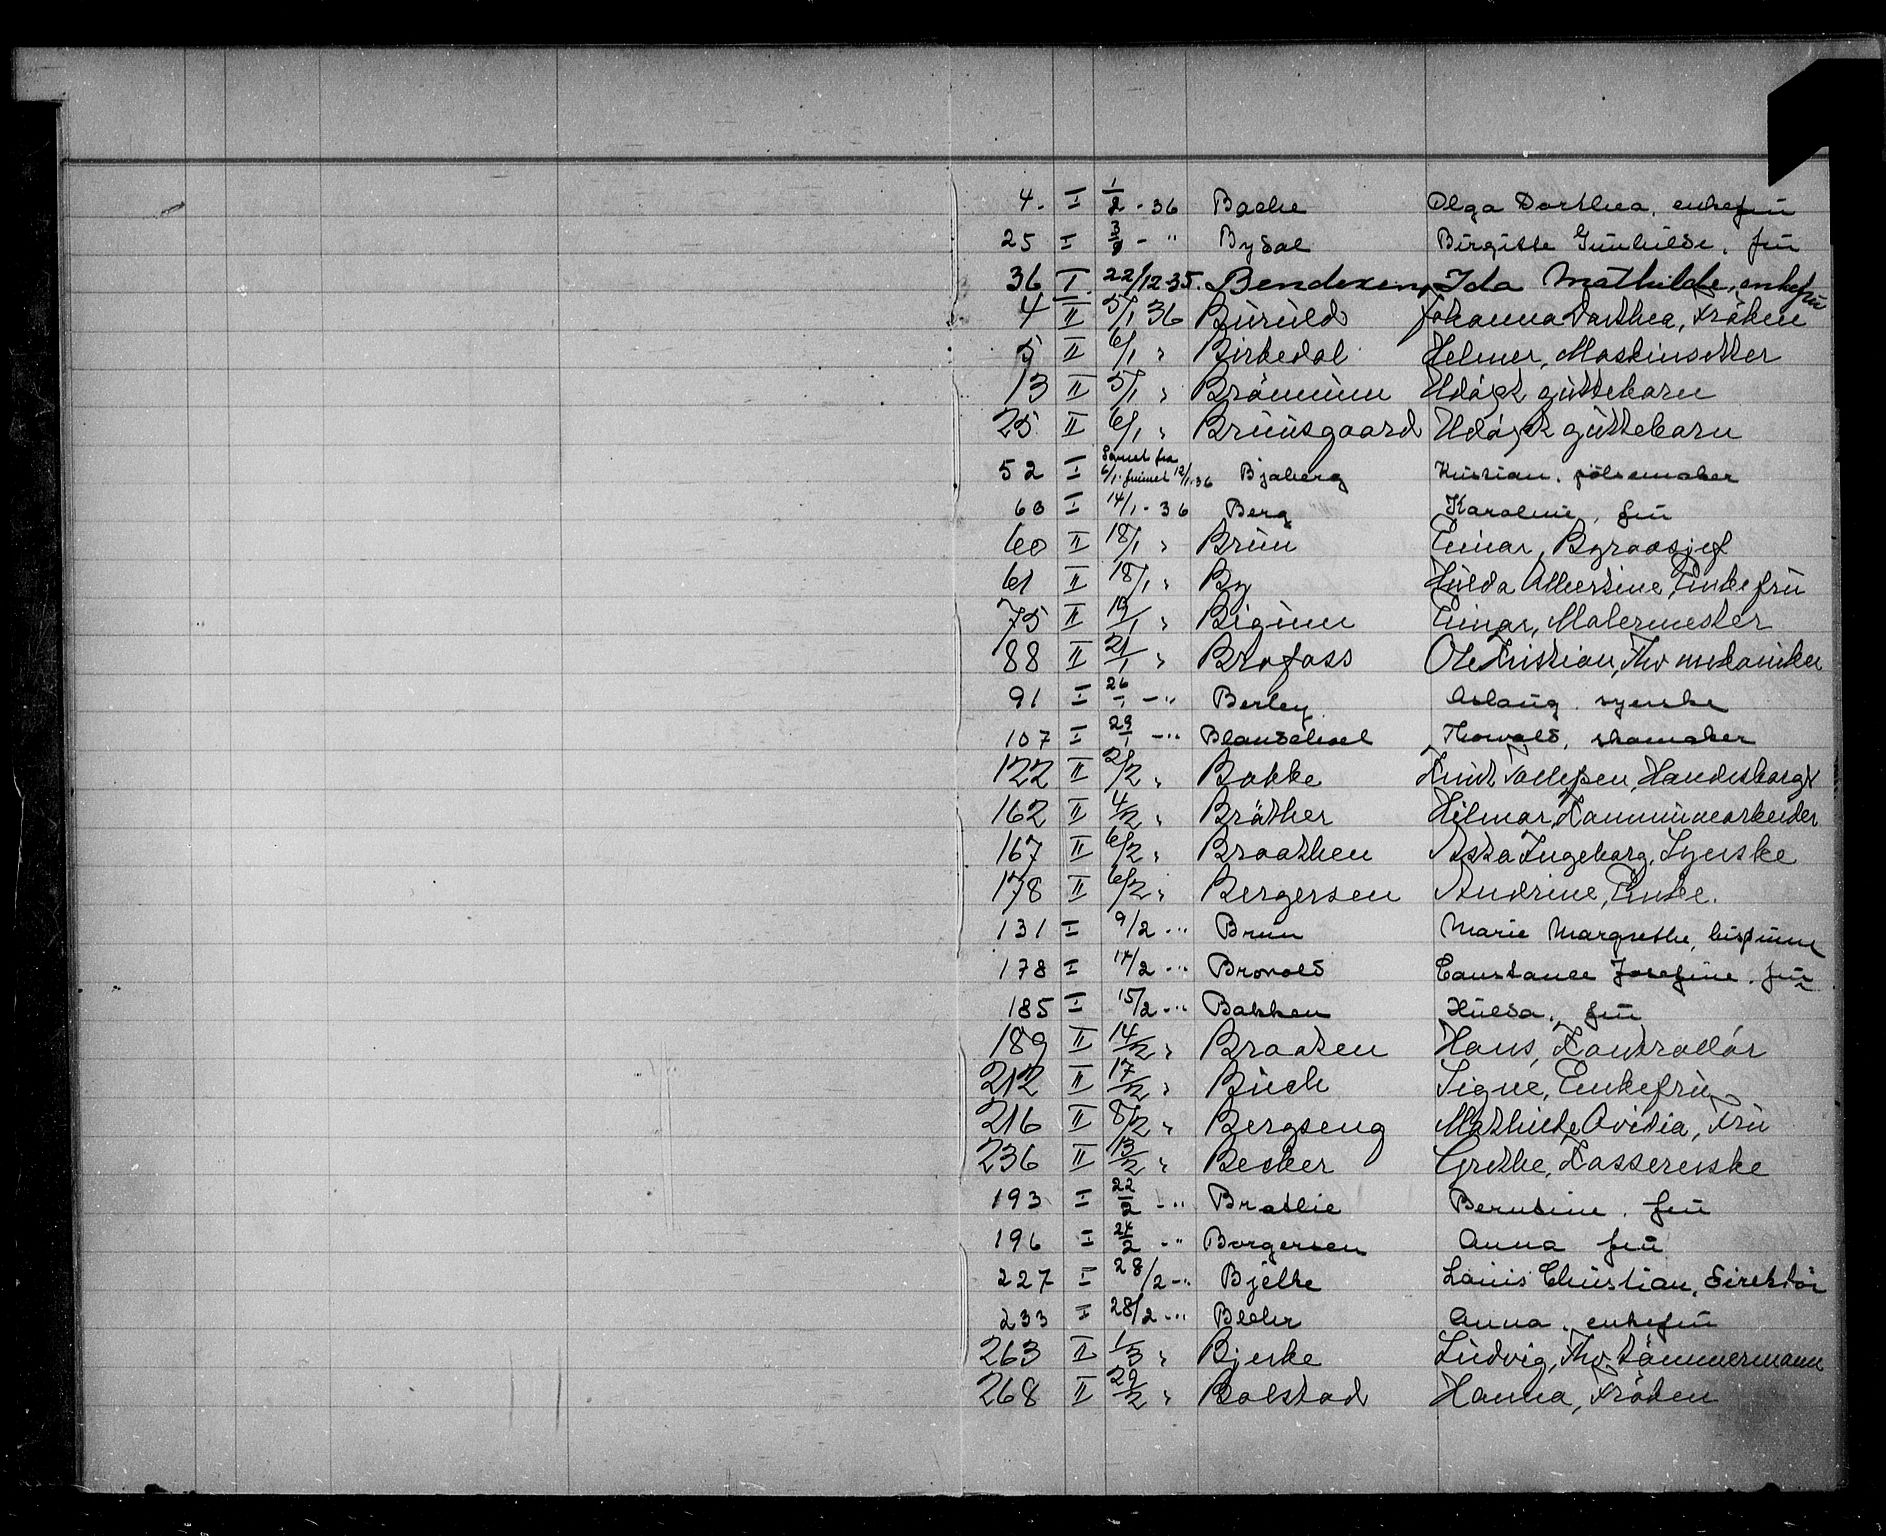 4. I 1/2 - 36 Bache Olga Dorthea, enkefrü
25 I 3/ - " Bydal Birgitte Gunhilde, frü
36 I 22/12-35. Bendixen, Ida Mathilde, enkefrü
4 II 5/1 36 Bjurüld Johanna Dorthea, Fröken
5 II 6/1 " Birkedal Helmer, Maskinsetter
13 II 5/1 " Udöpt guttebarn
25 II 6/1 " Bruusgaard Udöpt guttebarn
52 I Savnet fra 6/1. funnet 12/1.36 Bjaberg Kristian, pölsemaker
60 I 14/1 - 36 Berg Karoline, frü
60 II 18/1 " Brun Einar, Byraasjef
61 II 18/1 " By Hulda Albertine, Enkefrü
75 II /1 " Einar, Malermester
88 II 21/1 " Brofoss Ole Kristian, Fhv mekaniker
91 I 26/1 - " Berley Aslaug, syerske
107 I 29/1 - " Thorvald, skomaker
122 II 2/2 " Bakke Knut Tollefsen, Handelsborgs
162 II 4/2 " Bräther Hilmar, Kommunearbeider
167 II 6/2 " Braathen Asta Ingeborg, Syerske
178 II 6/2 " Bergersen Andrine, Enke.
131 I 9/2 - " Brun Marie Margrethe,
178 I 14/2 - " Brovold Constance Josefine, frü
185 I 15/2 - " Bakken Hulda, frü
189 II 14/2 " Braaten Hans, Kontrollör
212 II 17/2 " Buch Signe, Enkefrü
216 II 8/2 " Bergseng Mathilde Ovidia, Frü
236 II 13/2 " Becker Grethe, Kassererske
193 I 22/2 - " Bratlie Berntine, frü
196 I 24/2 - " Borgersen Anna frü
227 I 28/2 - " Bjelke Louis Christian, direktör
233 I 28/2 - " Blehr Anna, enkefrü
263 II 1/3 " Bjerke Ludvig, Fhv. tömmermann
268 II 29/2 " Bolstad Hanna, Fröken